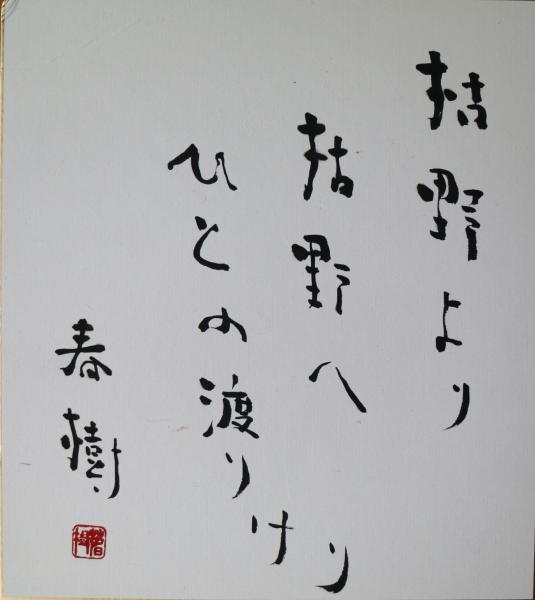 枯野より
枯野へ
ひとの渡りけり
春樹